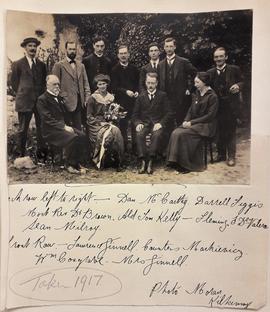 A row left to right — Dan McCarthy Darrell Figgis
Most Rev Dr Browne. Ald Tom Kelly — Fleming E De Valera
Sean Milroy.
Front Row — Laurence Ginnell Countess Markievicz
Wm Cosgrave — Mrs Ginnell
Taken 1917
Photo Moran
Kilkenny